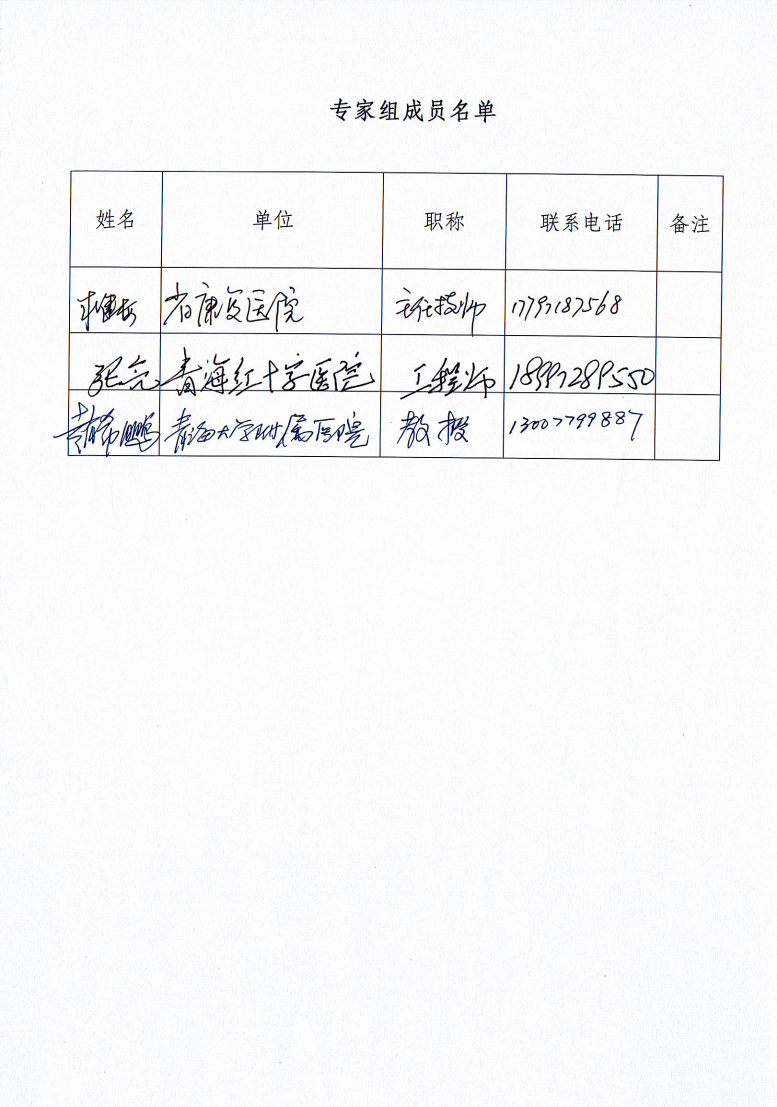 专家组成员名单
姓名 单位 职称 联系电话 备注
省康复医院 主任技师 17797187568
张亮 青海红十字医院 工程师 18997289550
希鹏 青海大学附属医院 教授 13007799887